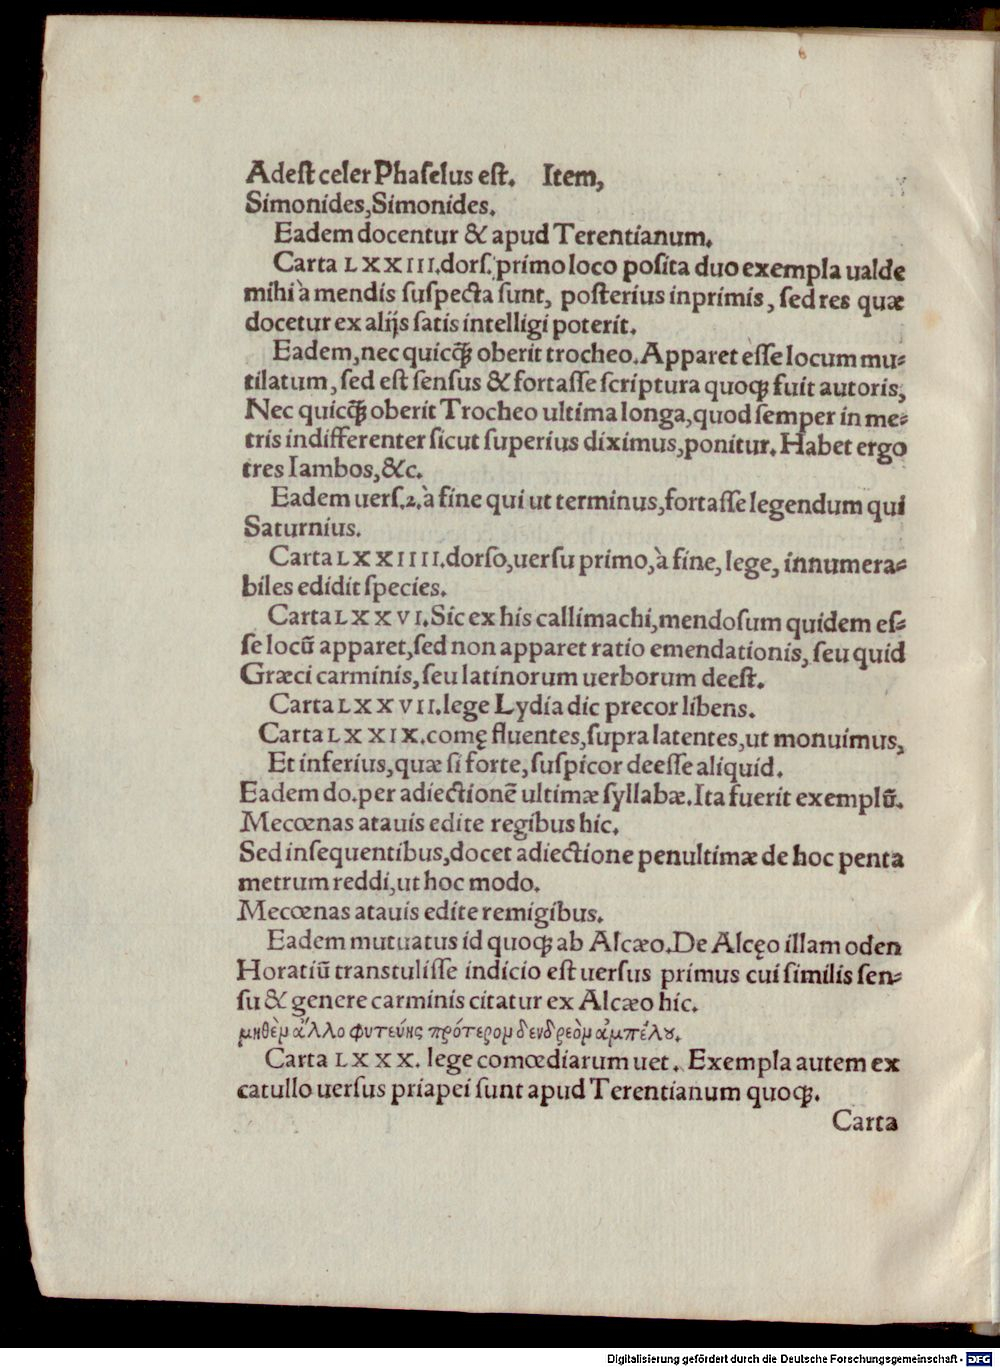 Adeſt celer Phaſelus eſt. Item,
Simonides,Simonides.
Eadem docentur & apud Terentianum.
Carta LXXIII.dorſ. primo loco poſita duo exempla ualde
mihi à mendis ſuſpecta ſunt, poſterius inprimis, ſed res quæ
docetur ex alijs ſatis intelligi poterit.
Eadem,nec quicq̃ꝫ oberit trocheo. Apparet eſſe locum mu⸗
tilatum, ſed eſt ſenſus & fortaſſe ſcriptura quoqꝫ fuit autoris,
Nec quicq̃ꝫ oberit Trocheo ultima longa,quod ſemper in me⸗
tris indifferenter ſicut ſuperius diximus,ponitur. Habet ergo
tres Iambos,&c.
Eadem uerſ.2.à fine qui ut terminus,fortaſſe legendum qui
Saturnius.
Carta LXXIIII.dorſo,uerſu primo,à fine, lege, innumera⸗
biles edidit ſpecies.
Carta LXXVI. Sic ex his callimachi,mendoſum quidem eſ⸗
ſe locũ apparet,ſed non apparet ratio emendationis, ſeu quid
Græci carminis, ſeu latinorum uerborum deeſt.
Carta LXXVII.lege Lydia dic precor libens.
Carta LXXIX.comę fluentes,ſupra latentes,ut monuimus,
Et inferius,quæ ſi forte, ſuſpicor deeſſe aliquid.
Eadem do.per adiectionẽ ultimæ ſyllabæ.Ita fuerit exemplũ.
Mecœnas atauis edite regibus hic.
Sed inſequentibus,docet adiectione penultimæ de hoc penta
metrum reddi,ut hoc modo.
Mecœnas atauis edite remigibus.
Eadem mutuatus id quoqꝫ ab Alcæo.De Alcęo illam oden
Horatiũ transtuliſſe indicio eſt uerſus primus cui ſimilis ſen⸗
ſu & genere carminis citatur ex Alcæo hic.
μηθὲμ ἄλλο φυτεύης πρότερομ δενδρεὸμ ἀμπέλου.
Carta LXXX. lege comœdiarum uet. Exempla autem ex
catullo uerſus priapei ſunt apud Terentianum quoqꝫ.
Carta
Digitalisierung gefördert durch die Deutsche Forschungsgemeinschaft - DFG